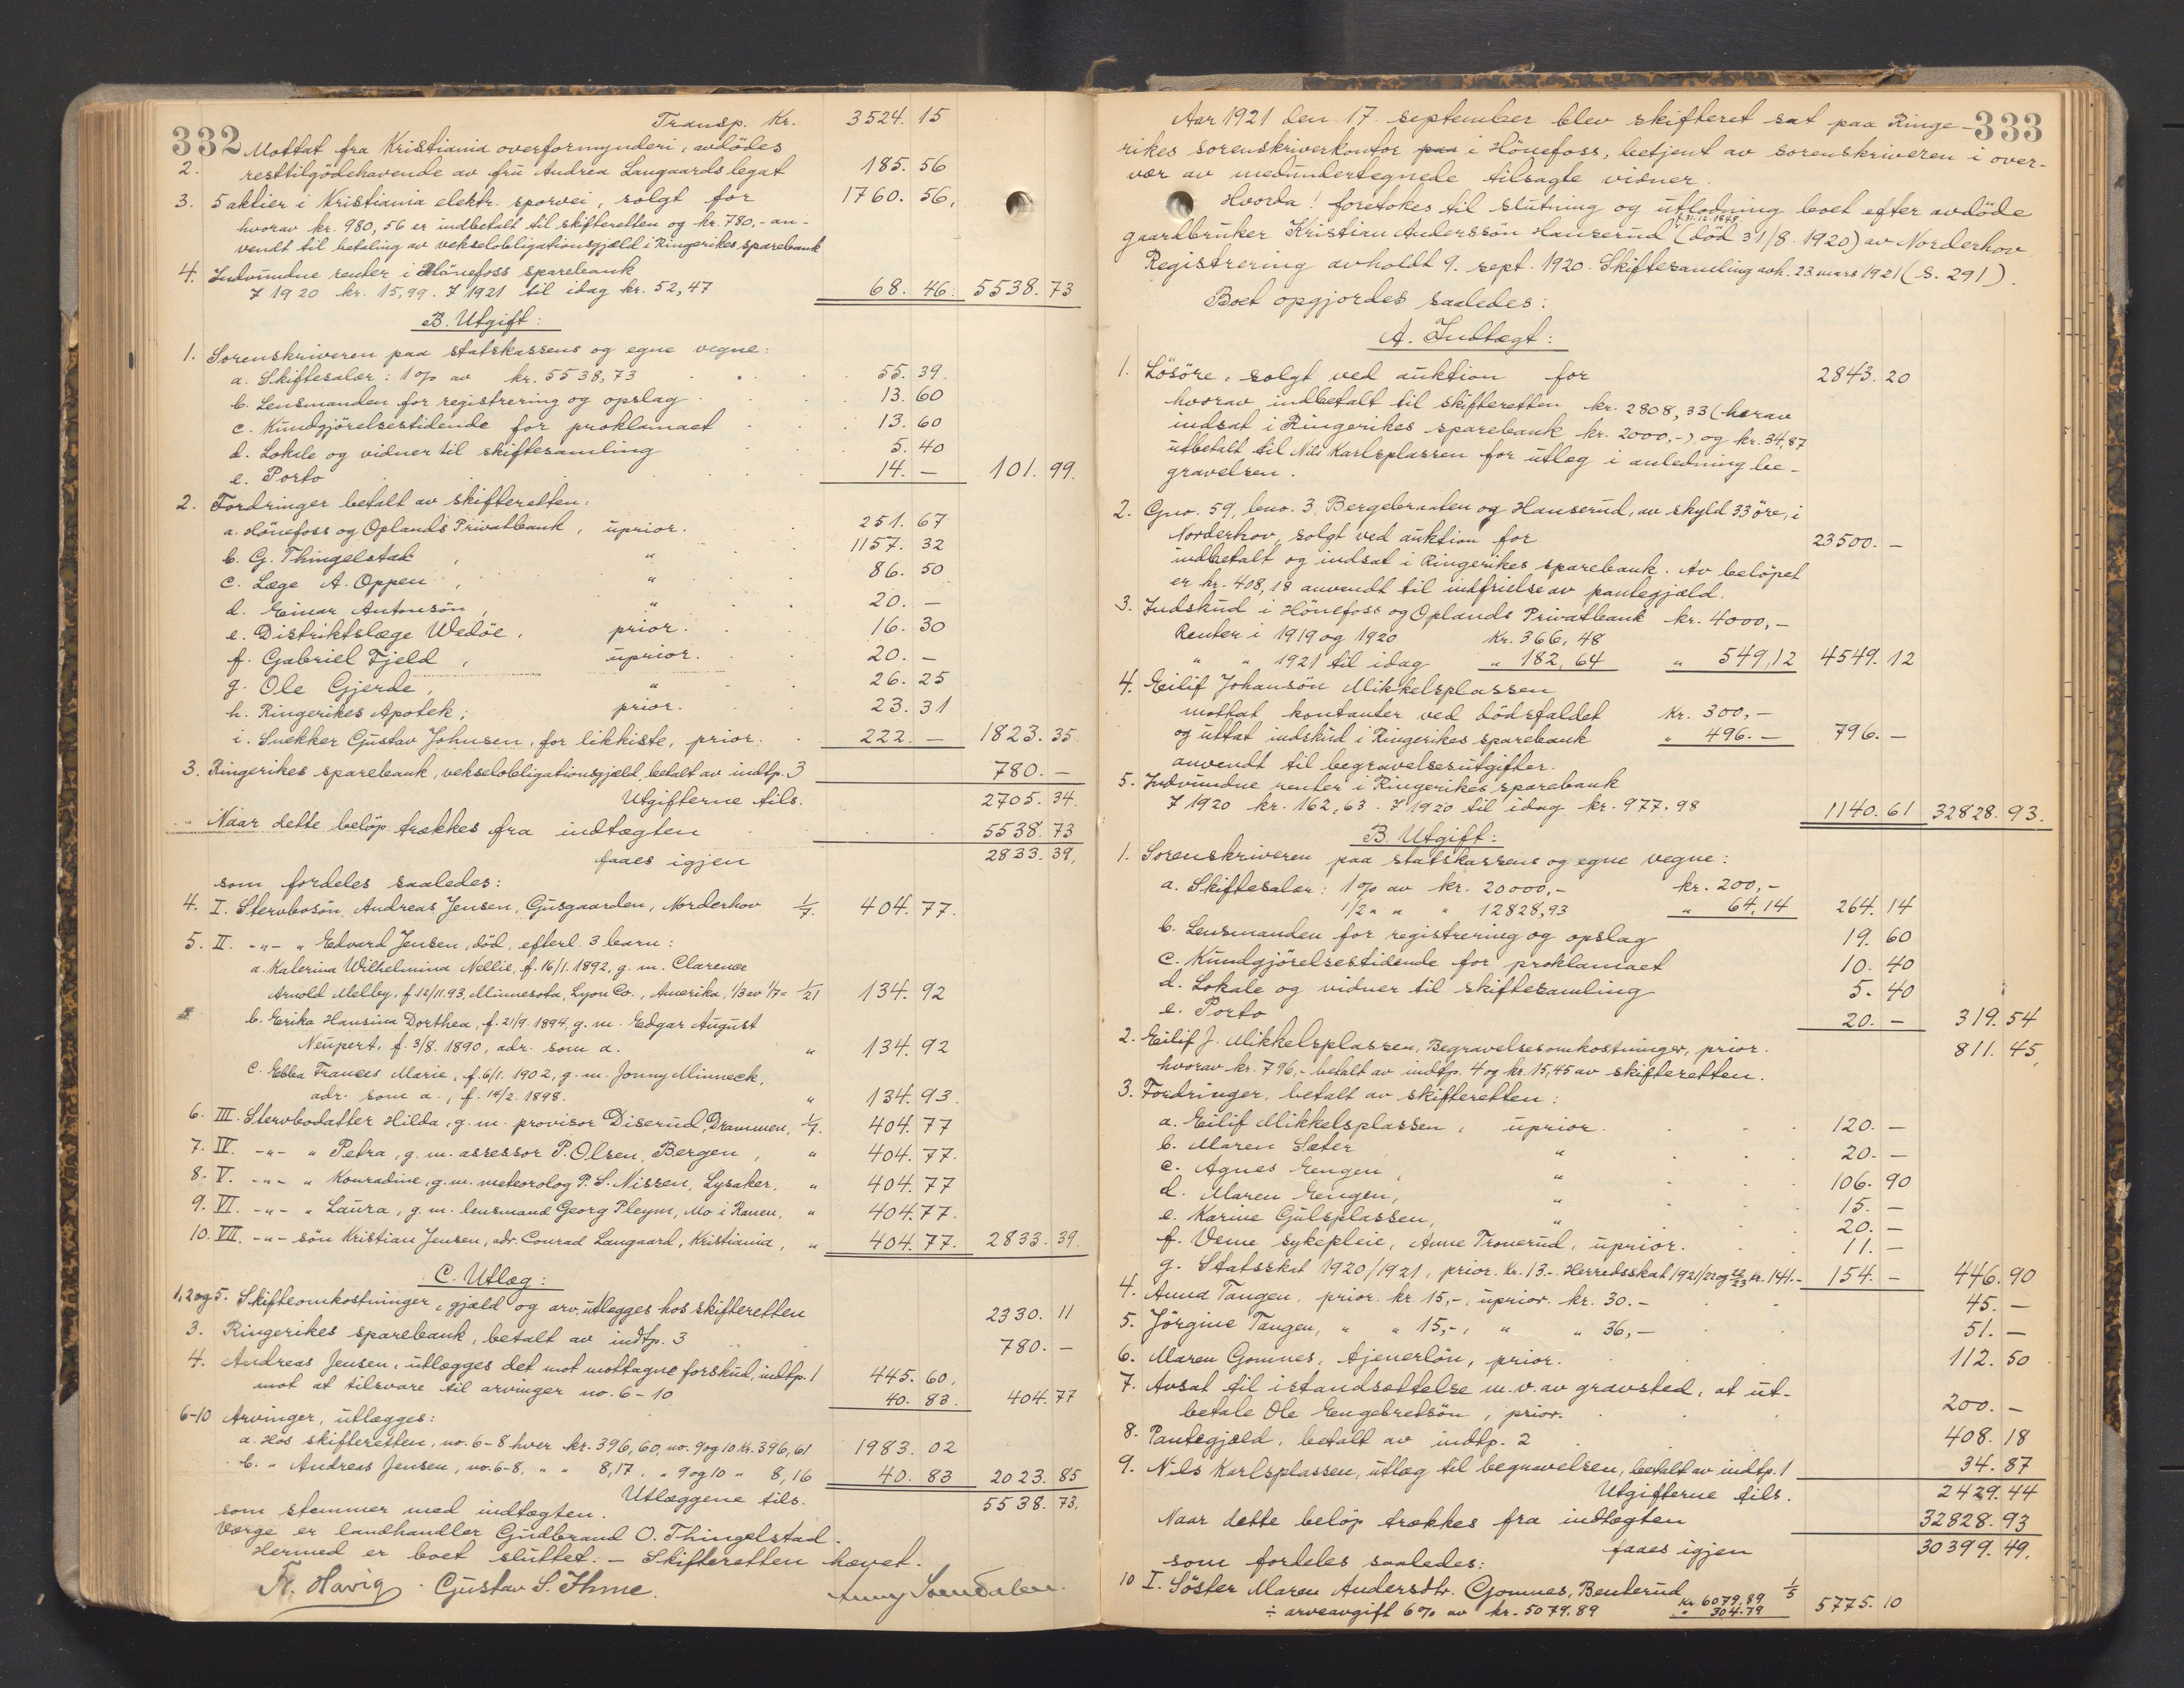 332
Transp. Kr. 3524. 15
2. Mottat fra Kristiania overformynderi, avdödes
resttilgodehavende av fru Andrea Langaards legat 185. 56
3. 5 aktier i Kristiania elektr. sporvei, solgt for 1760. 56.
hvorav kr. 980,56 er indbetalt til skifteretten og kr. 780,- an-
vendt til betaling av vekselobligationsgjæld i Ringerikes sparebank
4. Indvundne renter i Hönefoss sparebank
I 1920 kr. 15,99. I 1921 til idag kr. 52,47 68. 46. 5538. 73
B. Utgift:
1. Sorenskriveren paa statskassens og egne vegne:
a. Skiftesalær: 1% av kr. 5538,73 55. 39.
b. Lensmanden for registrering og opslag 13. 60
c. Kundgjörelsestidende for proklamaet 13. 60
d. Lokale og vidner til skiftesamling 5. 40
e. Porto 14. — 101. 99.
2. Fordringer betalt av skifteretten:
a. Hönefoss og Oplands Privatbank, uprior. 251. 67
b. G. Thingelstad, " 1157. 32
c. Læge A. Oppen, " 86. 50
d. Einar Antonsön, " 20. —
e. Distriktslæge Wedöe, prior. 16. 30
f. Gabriel Fjeld, uprior. 20. —
g. Ole Gjerde, " 26. 25
h. Ringerikes Apotek, prior. 23. 31
i. Snekker Gustav Johnsen, for likkiste, prior. 222. — 1823. 35
3. Ringerikes sparebank, vekselobligationsgjæld, betalt av indtp. 3 780. —
Utgifterne tils. 2705. 34.
Naar dette belöp trækkes fra indtægten 5538. 73
faaes igjen 2833. 39,
som fordeles saaledes:
4. I. Stervbosön Andreas Jensen, Gusgaarden, Norderhov 1/7. 404. 77.
5. II. -"- " Edvard Jensen, död, efterl. 3 barn:
a. Katerina Wilhelmina Nellie, f. 16/1. 1892, g. m. Clarence
Arnold Melby, f. 12/11.93, Minnesota, Lyon Co., Amerika, 1/3 av 1/7 = 1/21 134. 92
b. Erika Hansina Dorthea, f. 21/9. 1894, g. m. Edgar August
Neupert, f. 3/8. 1890, adr. som a. " 134. 92
c. Ebba Frances Marie, f. 6/1. 1902, g. m. Jonny Minneck,
adr. som a., f. 14/2. 1898. " 134. 93.
6. III. Stervbodatter Hilda, g. m. provisor Diserud, Drammen, 1/7. 404. 77
7. IV. -"- " Petra, g. m. assessor P. Olsen, Bergen, " 404. 77.
8. V. -"- " Konradine, g. m. meteorolog P. S. Nissen, Lysaker, " 404. 77
9. VI. -"- " Laura, g. m. lensmand Georg Pleym, Mo i Ranen, " 404. 77.
10. VII. -"- sön Kristian Jensen, adr. Conrad Langaard, Kristiania, " 404. 77. 2833. 39.
C. Utlæg:
1, 2 og 5. Skifteomkostninger, gjæld og arv, utlægges hos skifteretten 2330. 11
3. Ringerikes sparebank, betalt av indtp. 3 780. —
4. Andreas Jensen, utlægges det mot mottagne forskud, indtp. 1 445. 60.
mot at tilsvare til arvinger no. 6-10 40. 83. 404. 77
6-10 Arvinger, utlægges:
a. Hos skifteretten, no. 6-8 hver kr. 396,60, no. 9 og 10 kr. 396,61 1983. 02
b. " Andreas Jensen, no. 6-8, " " 8,17, " 9 og 10 " 8,16 40. 83 2023. 85
Utlæggene tils. 5538. 73,
som stemmer med indtægten.
Værge er landhandler Gudbrand O. Thingelstad.
Hermed er boet sluttet. — Skifteretten hævet.
Fr. Havig. Gustav S. Ihme.
333
Aar 1921 den 17. september blev skifteret sat paa Ringe-
rikes sorenskriverkontor paa i Hönefoss, betjent av sorenskriveren i over-
vær av medundertegnede tilsagte vidner.
Hvorda! foretokes til slutning og utlodning boet efter avdöde
f. 31.12.1849
gaardbruker Kristian Anderssön Hanserud (död 31/8. 1920) av Norderhov
Registrering avholdt 9. sept. 1920. Skiftesamling avh. 23 mars 1921 (S. 291).
Boet opgjordes saaledes:
A. Indtægt:
1. Lösöre, solgt ved auktion for 2843. 20
hvorav indbetalt til skifteretten kr. 2808,33 (herav
indsat i Ringerikes sparebank kr. 2000,-) og kr. 34,87
utbetalt til Nils Karlsplassen for utlæg i anledning be-
gravelsen.
2. Gno. 59, bno. 3, Bergebraaten og Hanserud, av skyld 33 öre, i
Norderhov, solgt ved auktion for 23500. —
indbetalt og indsat i Ringerikes sparebank. Av belöpet
er kr. 408,18 anvendt til indfrielse av pantegjæld.
3. Indskud i Hönefoss og Oplands Privatbank kr. 4000,-
Renter i 1919 og 1920 Kr. 366,48
" " 1921 til idag " 182,64 " 549,12 4549. 12
4. Eilif Johansön Mikkelsplassen
mottat kontanter ved dödsfaldet Kr. 300,-
og uttat indskud i Ringerikes sparebank " 496.- 796. —
anvendt til begravelsesutgifter.
5. Indvundne renter i Ringerikes sparebank
I 1920 kr. 162,63. I 1920 til idag kr. 977,98 1140. 61 32828. 93.
B. Utgift:
1. Sorenskriveren paa statskassens og egne vegne:
a. Skiftesalær: 1% av kr. 20000,- kr. 200,-
1/2 " " " 12828,93 " 64,14 264. 14
b. Lensmanden for registrering og opslag 19. 60
c. Kundgjörelsestidende for proklamaet 10. 40
d. Lokale og vidner til skiftesamling 5. 40
e. Porto 20. — 319. 54
2. Eilif J. Mikkelsplassen, Begravelsesomkostninger, prior. 811. 45,
hvorav kr. 796,- betalt av indtp. 4 og kr. 15,45 av skifteretten.
3. Fordringer, betalt av skifteretten:
a. Eilif Mikkelsplassen, uprior. 120. —
b. Maren Sæter " 20. —
c. Agnes Eengen, " 106. 90
d. Maren Eengen, " 15. —
e. Karine Gulsplassen, " 20. —
f. Veme sykepleie, Anne Tronerud, uprior. 11. —
g. Statsskat 1920/1921, prior. Kr. 13.- Herredsskat 1921/22 og 22/23 kr. 141.- 154. — 446. 90
4. Anna Tangen, prior. kr. 15,-, uprior. kr. 30.- 45. —
5. Jörgine Tangen, " " 15,-, " " 36,- 51. —
6. Maren Gomnes, tjenerlön, prior. 112. 50
7. Avsat til istandsættelse m. v. av gravsted, at ut-
betale Ole Engebretsön, prior. 200. —
8. Pantegjæld, betalt av indtp. 2 408. 18
9. Nils Karlsplassen, utlæg til begravelsen, betalt av indtp. 1 34. 87
Utgifterne tils. 2429. 44
Naar dette belöp trækkes fra indtægten 32828. 93
faaes igjen 30399. 49.
som fordeles saaledes:
10 I. Söster Maren Andersdtr. Gomnes, Benterud 1/5 Kr. 6079,89
÷ arveavgift 6% av kr. 5079.89 " 304.79 5775. 10